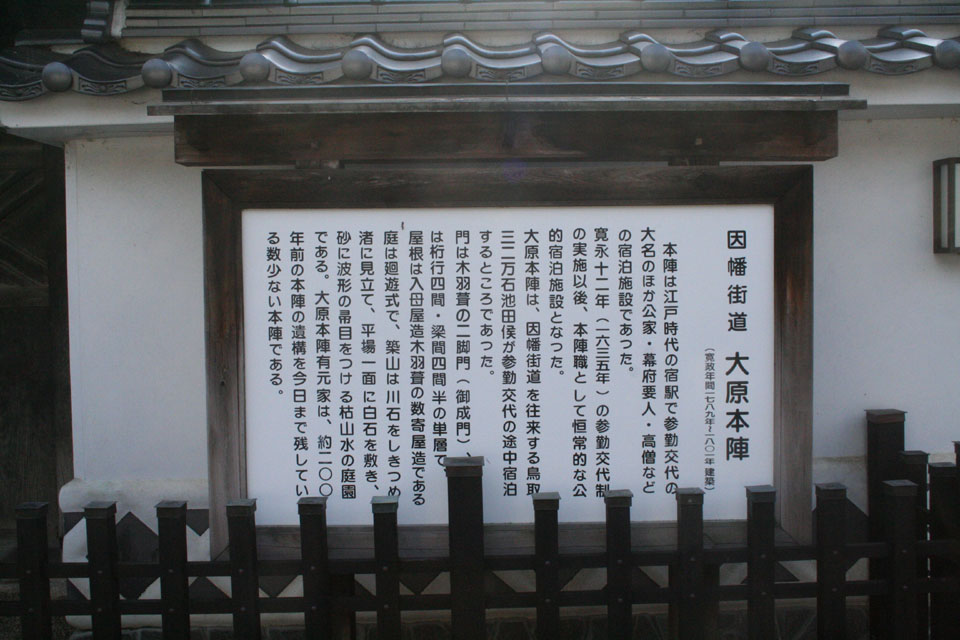 因幡街道 大原本陣
(寛政年間一七八九年~一八〇一年 建築)
本陣は江戸時代の宿駅で参勤交代の
大名のほか公家・幕府要人・高僧など
の宿泊施設であった。
寛永十二年(一六三五年)の参勤交代制
の実施以後、本陣職として恒常的な公
的宿泊施設となった。
大原本陣は、因幡街道を往来する鳥取
三二万石池田侯が参勤交代の途中宿泊
するところであった。
門は木羽葺の二脚門(御成門)、
は桁行四間・梁間四間半の単層で
屋根は入母屋造木羽葺の数寄屋造である
庭は廻遊式で、築山は川石をしきつめ
渚に見立て、平場一面に白石を敷き、
砂に波形の帚目をつける枯山水の庭園
である。大原本陣有元家は、約二〇〇
年前の本陣の遺構を今日まで残してい
る数少ない本陣である。